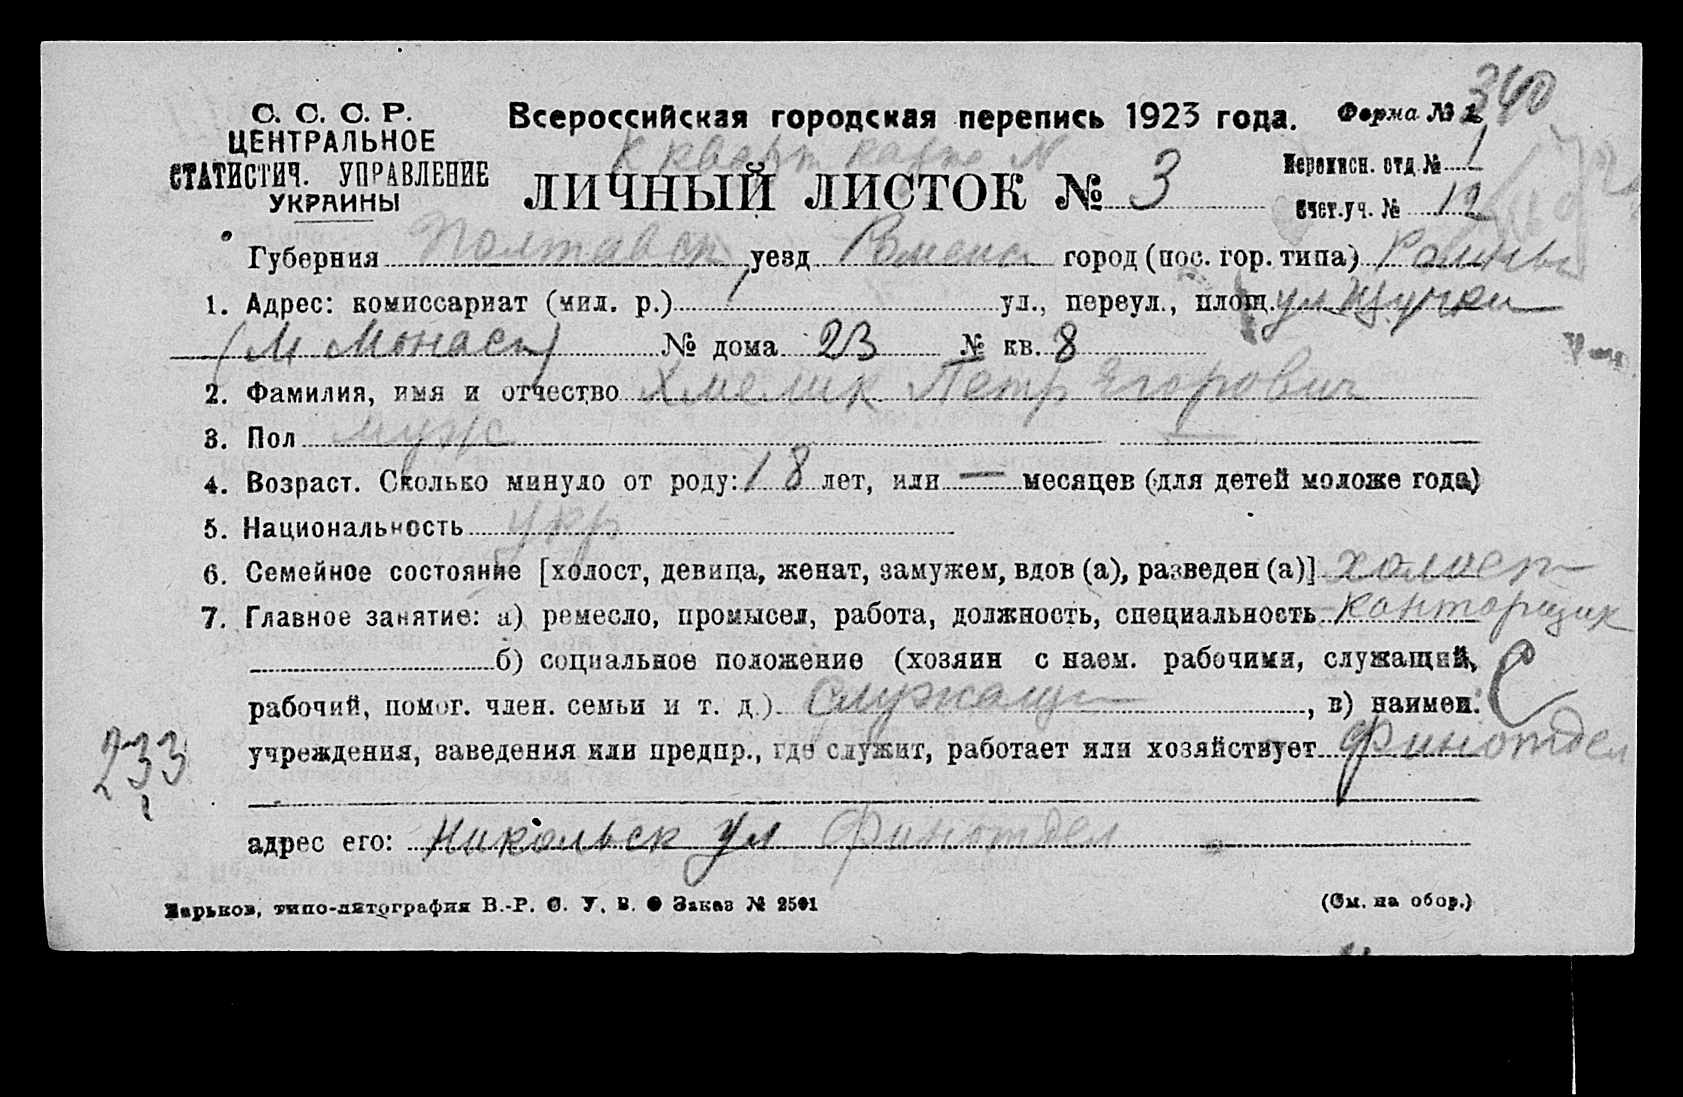 С. С. С. Р.
ЦЕНТРАЛЬНОЕ
СТАТИСТИЧ. УПРАВЛЕНИЕ
УКРАИНЫ
Всероссийская городская перепись 1923 года.
Форма № 1
340
К кварт карте №
ЛИЧНЫЙ ЛИСТОК № 3
Переписн. отд. № 1
Счет. уч. № 12
Губерния Полтавск уезд Роменск город (пос. гор. типа) Ромны
1. Адрес: комиссариат (мил. р.) 1 ул., переул., площ. ул Щучки
(М Монаст) № дома 23 № кв. 8
2. Фамилия, имя и отчество Хмелик Петр Егорович
3. Пол муж
4. Возраст. Сколько минуло от роду: 18 лет, или — месяцев (для детей моложе года)
5. Национальность укр
6. Семейное состояние [холост, девица, женат, замужем, вдов (а), разведен (а)] холост
7. Главное занятие: а) ремесло, промысел, работа, должность, специальность конторщик
б) социальное положение (хозяин с наем. рабочими, служащий,
рабочий, помог. член. семьи и т. д.) Служащ , в) наимен. С
учреждения, заведения или предпр., где служит, работает или хозяйствует Финотдел
233
адрес его: Никольск ул Финотдел
Харьков, типо-литография В.-Р. С. У. В. Заказ № 2501
(См. на обор.)